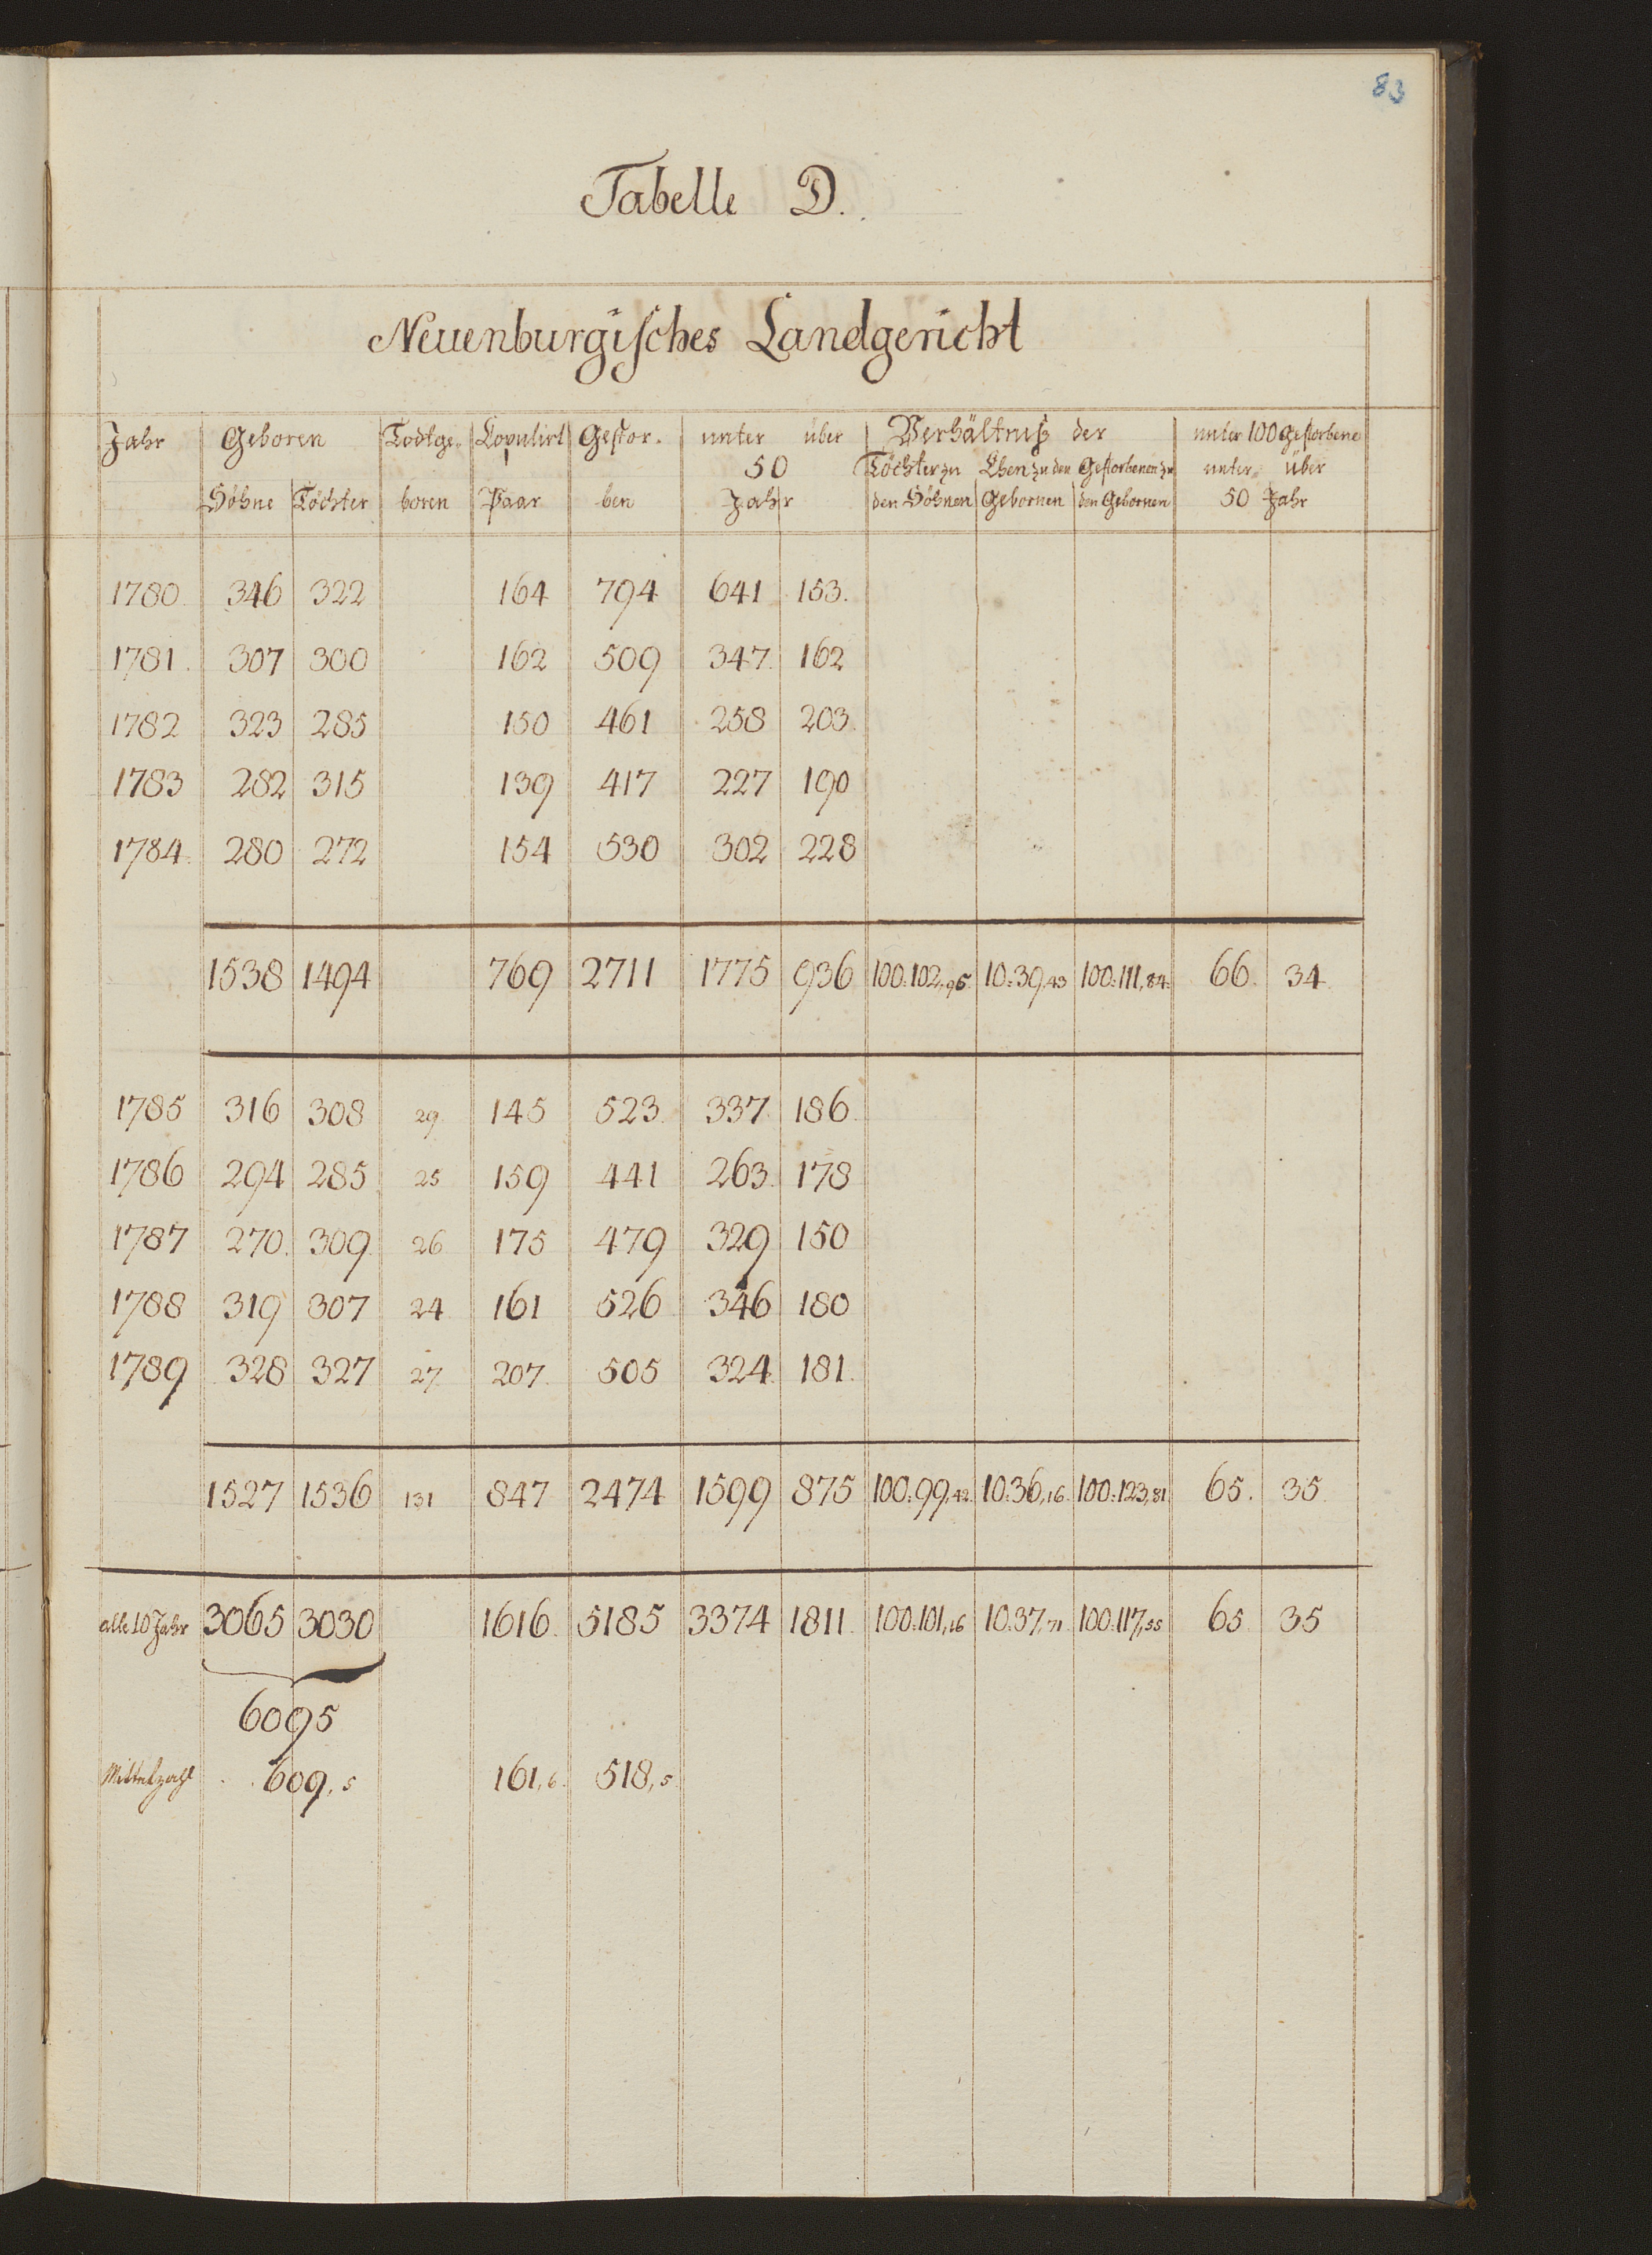 83
Tabelle D.
Neuenburgisches Landgericht
Jahr Geboren Todtge- Copulirt Gestor- unter über Verhältniß der unter 100 gestorbene
50 Töchter zu Ehen zu den Gestorbenen zu unter über
Söhne Töchter boren Paar ben Jahr den Söhnen Gebornen den Gebornen 50 Jahr
1780. 346 322 164 794 641 153.
1781. 307 300 162 509 347. 162
1782 323 285 150 461 258 203.
1783 282 315 139 417 227 190
1784. 280 272 154 530 302 228
1538 1494 769 2711 1775 936 100:102,95. 10:39,43 100:111,84. 66. 34.
1785 316 308 29 145 523. 337 186.
1786 294 285 25 159 441 263. 178
1787 270. 309. 26 175 479 329 150
1788 319 307 24 161 526 346 180
1789 328 327 27. 207. 505 324. 181.
1527 1536 131 847 2474 1599 875 100:99,42. 10:36,16. 100:123,81. 65. 35.
alle 10 Jahr 3065 3030 1616. 5185 3374 1811. 100:101,16 10:37,71. 100:117,55 65. 35
6095
Mittelzahl 609,5 161,6. 518,5